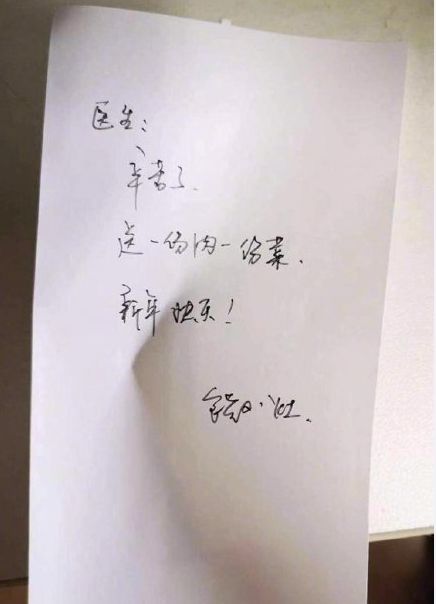 医生：
辛苦了.
送一份肉一份菜.
新年快乐！
小灶.